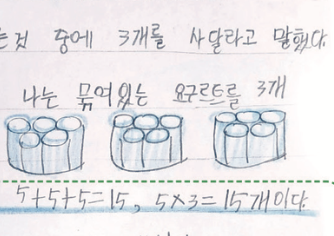 것 중에 3개를 사달라고 말했다
나는 묶여있는 요구르트를 3개
5+5+5=15, 5×3=15개이다